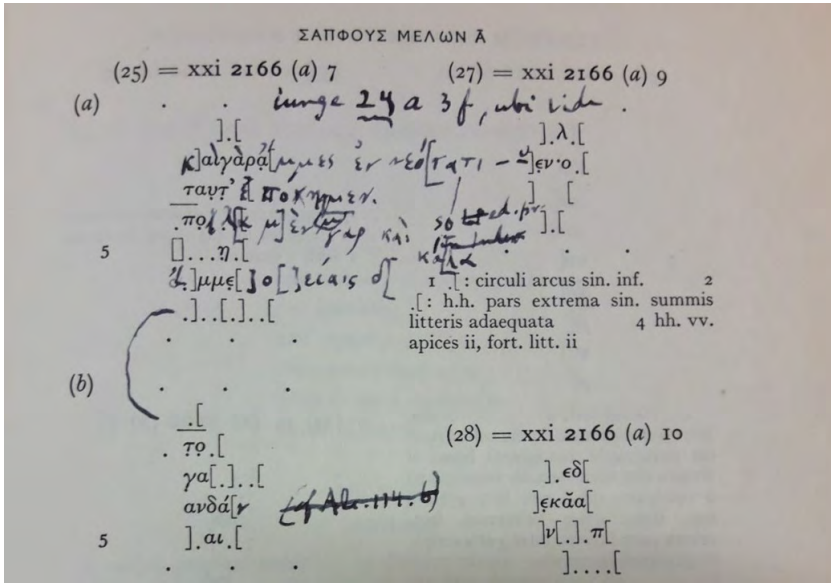 ΣΑΠΦΟΥΣ ΜΕΛΩΝ Ᾱ
(25) = xxi 2166 (a) 7
(a) . . iunge 24 a 3 f, ubi vide .
].[
κ]αὶγὰρα̣[μμες ἐν νεό[τατι
ταυτ' ἐ[πόημμεν.
.πο̣[λλ[α μ]ὲν γαρ καὶ κάλα
5 []...η.[
ἄ]μμε[ ]ο[ ]είαις δ[
.]..[.]..[
. . .
(b) . . .
.[
. το̣.[
γα[.]..[
ανδά[ν
5 ].αι.[
. . .
(27) = xxi 2166 (a) 9
].λ.[
]εν·ο.[
] [
].[
. . .
1 .[: circuli arcus sin. inf. 2
.[: h.h. pars extrema sin. summis
litteris adaequata 4 hh. vv.
apices ii, fort. litt. ii
(28) = xxi 2166 (a) 10
].εδ[
]εκᾰα[
]ν[.].π[
]....[